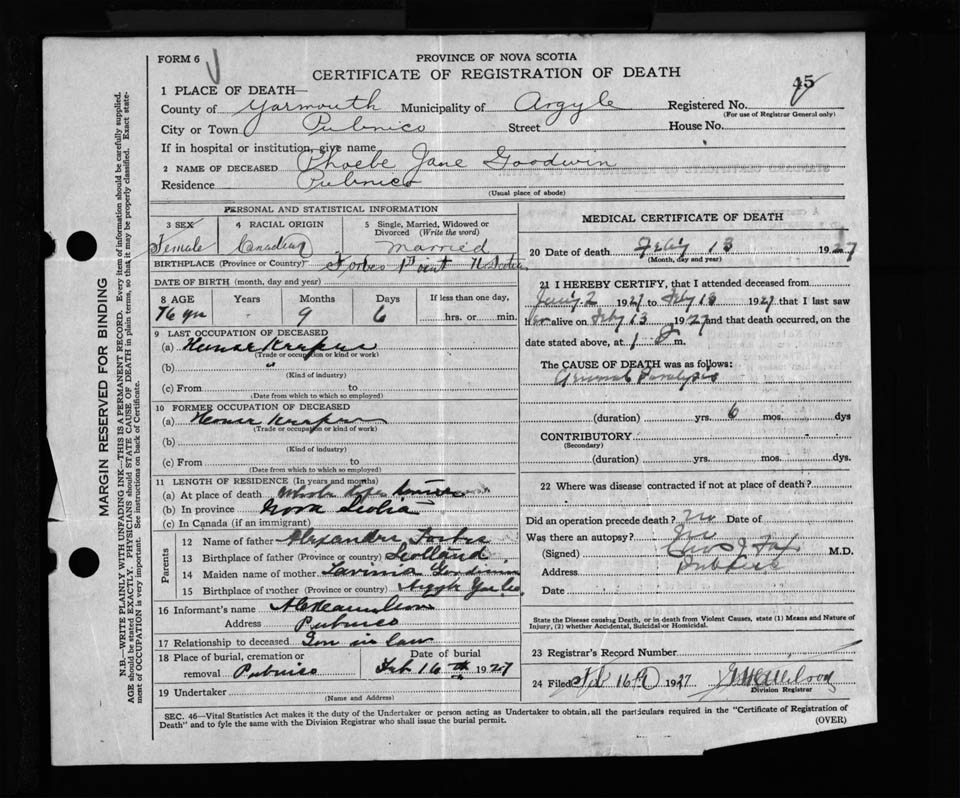 FORM 6
PROVINCE OF NOVA SCOTIA
CERTIFICATE OF REGISTRATION OF DEATH
45
1 PLACE OF DEATH—
County of Yarmouth Municipality of Argyle Registered No.
(For use of Registrar General only)
City or Town Pubnico Street House No.
If in hospital or institution, give name
2 NAME OF DECEASED Phoebe Jane Goodwin
Residence Pubnico
(Usual place of abode)
PERSONAL AND STATISTICAL INFORMATION
3 SEX Female
4 RACIAL ORIGIN Canadian
5 Single, Married, Widowed or Divorced (Write the word) Married
BIRTHPLACE (Province or Country) Forbes Point N. Scotia
DATE OF BIRTH (month, day and year)
8 AGE Years Months Days If less than one day,
76 yrs 9 6 hrs. or min.
9 LAST OCCUPATION OF DECEASED
(a) House Keeper
(Trade or occupation or kind or work)
(b)
(Kind of industry)
(c) From to
(Date from which to which so employed)
10 FORMER OCCUPATION OF DECEASED
(a) House Keeper
(Trade or occupation or kind or work)
(b)
(Kind of industry)
(c) From to
(Date from which to which so employed)
11 LENGTH OF RESIDENCE (In years and months)
(a) At place of death Whole life
(b) In province Nova Scotia
(c) In Canada (if an immigrant)
Parents
12 Name of father Alexander Forbes
13 Birthplace of father (Province or country) Scotland
14 Maiden name of mother Lavinia
15 Birthplace of mother (Province or country) Argyle
16 Informant's name
Address Pubnico
17 Relationship to deceased Son in law
18 Place of burial, cremation or removal Pubnico
Date of burial Feb 16th 1927
19 Undertaker
(Name and Address)
MEDICAL CERTIFICATE OF DEATH
20 Date of death Feby 13 1927
(Month, day and year)
21 I HEREBY CERTIFY, that I attended deceased from
2 1927 to Feby 13 1927 that I last saw
her alive on Feby 13 1927 and that death occurred, on the
date stated above, at 1 m.
The CAUSE OF DEATH was as follows:
General Paralysis
(duration) yrs. 6 mos. dys
CONTRIBUTORY
(Secondary)
(duration) yrs. mos. dys
22 Where was disease contracted if not at place of death?
Did an operation precede death? No Date of
Was there an autopsy? No
(Signed) M.D.
Address Pubnico
Date
State the Disease causing Death, or in death from Violent Causes, state (1) Means and Nature of Injury, (2) whether Accidental, Suicidal or Homicidal.
23 Registrar's Record Number
24 Filed Feb 16th 1927
Division Registrar
SEC. 46—Vital Statistics Act makes it the duty of the Undertaker or person acting as Undertaker to obtain, all the particulars required in the "Certificate of Registration of
Death" and to fyle the same with the Division Registrar who shall issue the burial permit.
(OVER)
MARGIN RESERVED FOR BINDING
N.B.—WRITE PLAINLY WITH UNFADING INK—THIS IS A PERMANENT RECORD. Every item of information should be carefully supplied.
AGE should be stated EXACTLY. PHYSICIANS should STATE CAUSE OF DEATH in plain terms, so that it may be properly classified. Exact state-
ment of OCCUPATION is very important. See instructions on back of Certificate.